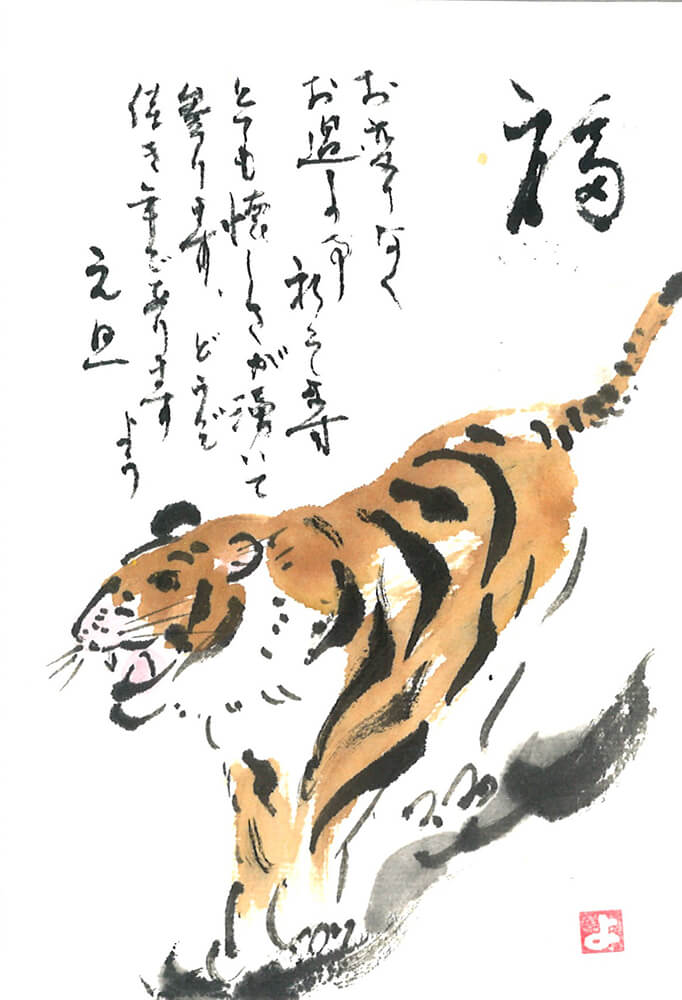 福
お変りなく
お過し
とても懐しさが湧いて
参ります、どうぞ
佳き年であります
よう
元旦
よ